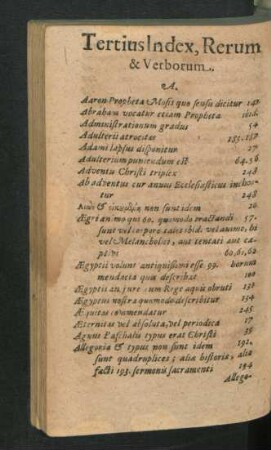 Tertius Index, Rerum
& Verborum.
A.
Aaron Propheta Mosis quo sensu dicitur 142
Abraham vocatur etiam Propheta ibid.
Administrationum gradus 50
Adulterii atrocitas 185.187
Adami lapsus disponitur 27
Adulterium puniendum est 64.56
Adventu Christi triplex 248
Ab adventus cur annus Ecclesiasticus inchoa-
tur 248
non sunt idem 26
Ægri animo qui 60. quomodo tractandi 57.
sunt vel corpore tales ibid. vel animo, hi
vel Melancholici, aut tentati aut ca-
ptivi 60,61,62
Ægyptii volunt antiquissimi esse 59. horum
mendacia quæ describat 100
Ægyptii an jure cum Rege aquis obruti 137
Ægyptus nostra quomodo describitur 194
Æquitas commendatur 245
Æternitas vel absoluta, vel periodica 17
Agnus Paschalis typus erat Christi 38
Allegoria & typus non sunt idem 192.
sunt quadruplices; alia historia, alia
facti 193. sermonis sacramenti 194
Allego-